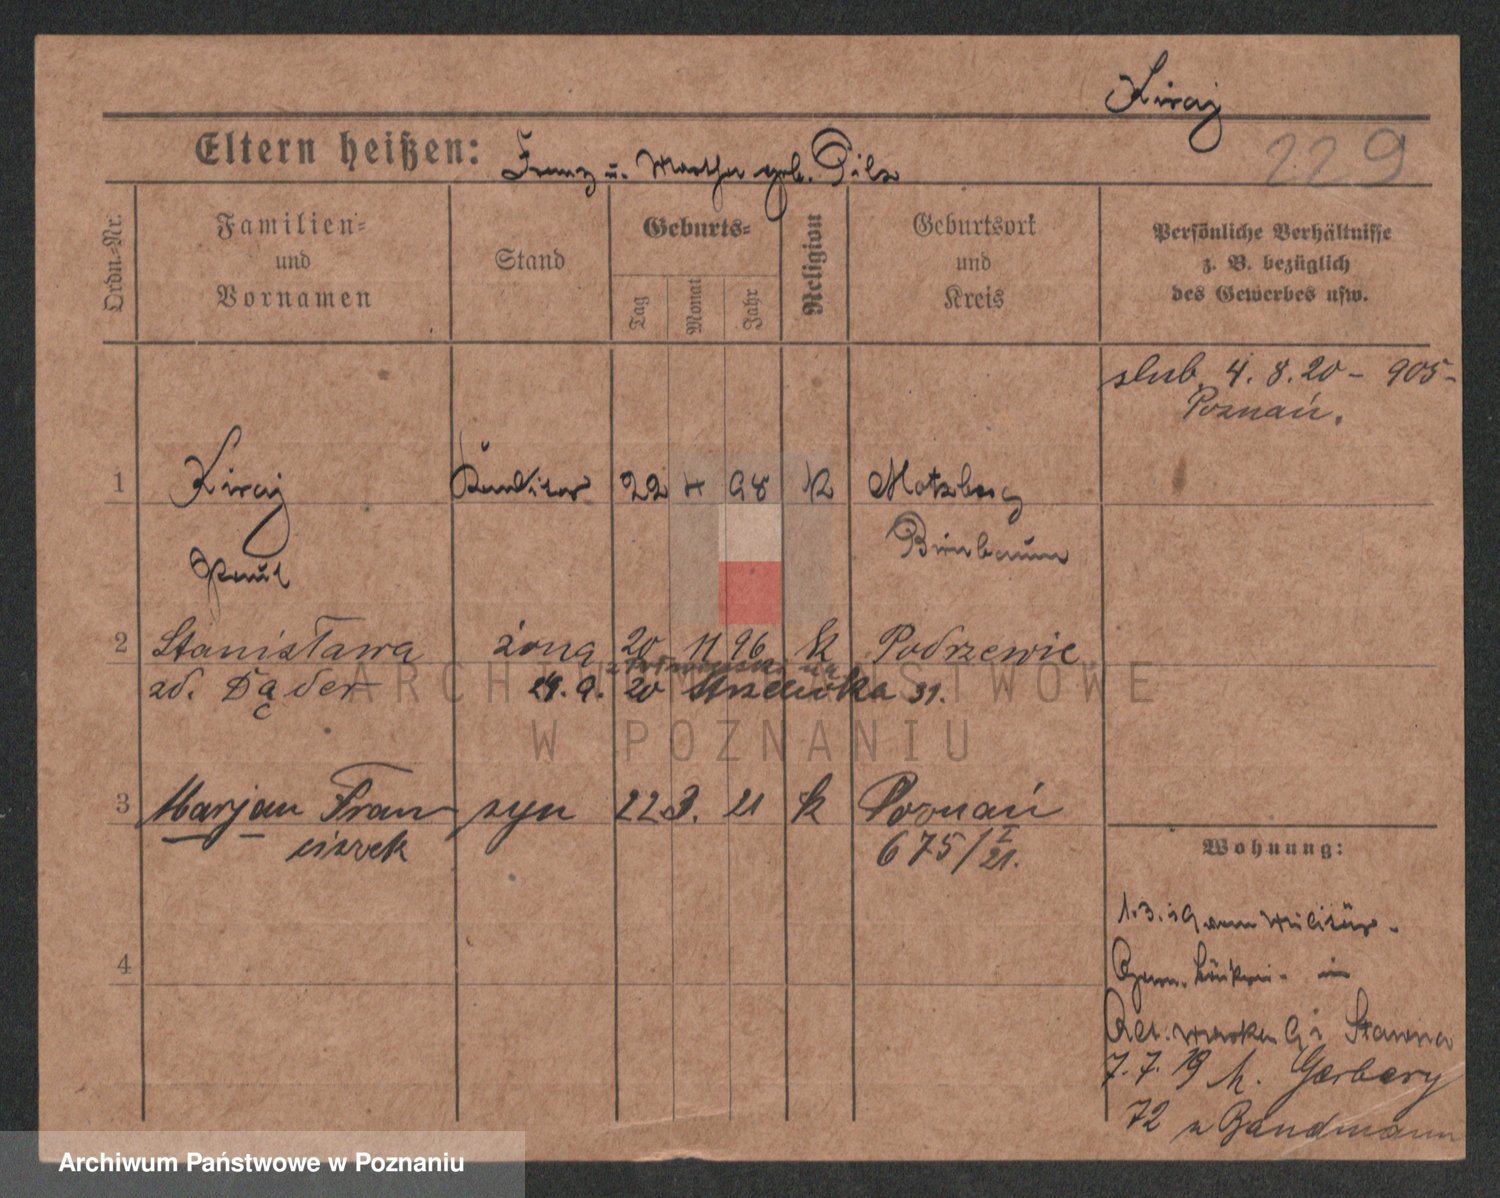 Kiraj
229
Eltern heißen: Franz u. Martha geb. Pilz
Ordn.-Nr.
Familien- und Vornamen
Stand
Geburts-
Tag
Monat
Jahr
Religion
Geburtsort und Kreis
Persönliche Verhältnisse
z. B. bezüglich
des Gewerbes usw.
ślub. 4. 8. 20 - 905-
Poznań.
1 Kiraj Konditor 22 4 98 K
Birnbaum
Paul
2 Stanisława żona 20 11 96 k Podrzewie
zd. 20 31.
3 Marjan Fran- syn 22 3. 21 k Poznań
ciszek 675/I 21.
Wohnung:
4
1.3.19 Militär-
in
7.7.19 h. Gerbery
72 z Bandmann
ARCHIWUM PAŃSTWOWE
W POZNANIU
Archiwum Państwowe w Poznaniu